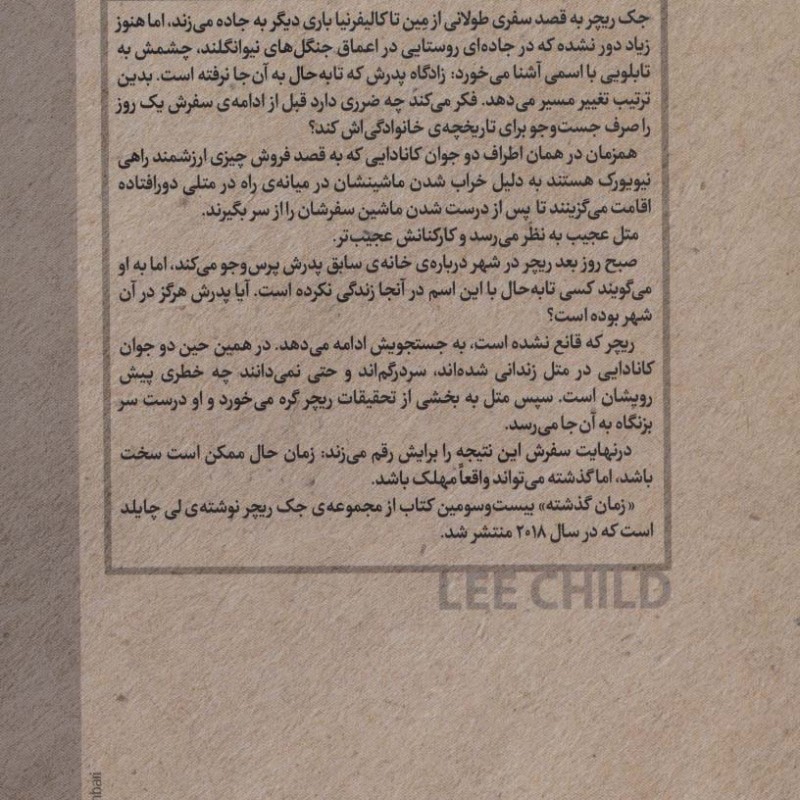 جک ریچر به قصد سفری طولانی از مِین تا کالیفرنیا باری دیگر به جاده می‌زند، اما هنوز
زیاد دور نشده که در جاده‌ای روستایی در اعماق جنگل‌های نیوانگلند، چشمش به
تابلویی با اسمی آشنا می‌خورد: زادگاه پدرش که تابه‌حال به آن‌جا نرفته است. بدین
ترتیب تغییر مسیر می‌دهد. فکر می‌کند چه ضرری دارد قبل از ادامه‌ی سفرش یک روز
را صرف جست‌وجو برای تاریخچه‌ی خانوادگی‌اش کند؟
همزمان در همان اطراف دو جوان کانادایی که به قصد فروش چیزی ارزشمند راهی
نیویورک هستند به دلیل خراب شدن ماشینشان در میانه‌ی راه در متلی دورافتاده
اقامت می‌گزینند تا پس از درست شدن ماشین سفرشان را از سر بگیرند.
متل عجیب به نظر می‌رسد و کارکنانش عجیب‌تر.
صبح روز بعد ریچر در شهر درباره‌ی خانه‌ی سابق پدرش پرس‌وجو می‌کند، اما به او
می‌گویند کسی تابه‌حال با این اسم در آنجا زندگی نکرده است. آیا پدرش هرگز در آن
شهر بوده است؟
ریچر که قانع نشده است، به جستجویش ادامه می‌دهد. در همین حین دو جوان
کانادایی در متل زندانی شده‌اند، سردرگم‌اند و حتی نمی‌دانند چه خطری پیش
رویشان است. سپس متل به بخشی از تحقیقات ریچر گره می‌خورد و او درست سر
بزنگاه به آن‌جا می‌رسد.
درنهایت سفرش این نتیجه را برایش رقم می‌زند: زمان حال ممکن است سخت
باشد، اما گذشته می‌تواند واقعاً مهلک باشد.
«زمان گذشته» بیست‌وسومین کتاب از مجموعه‌ی جک ریچر نوشته‌ی لی چایلد
است که در سال ۲۰۱۸ منتشر شد.
LEE CHILD